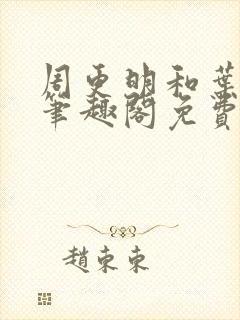 周更明和葉
筆趣閣免費
趙東東